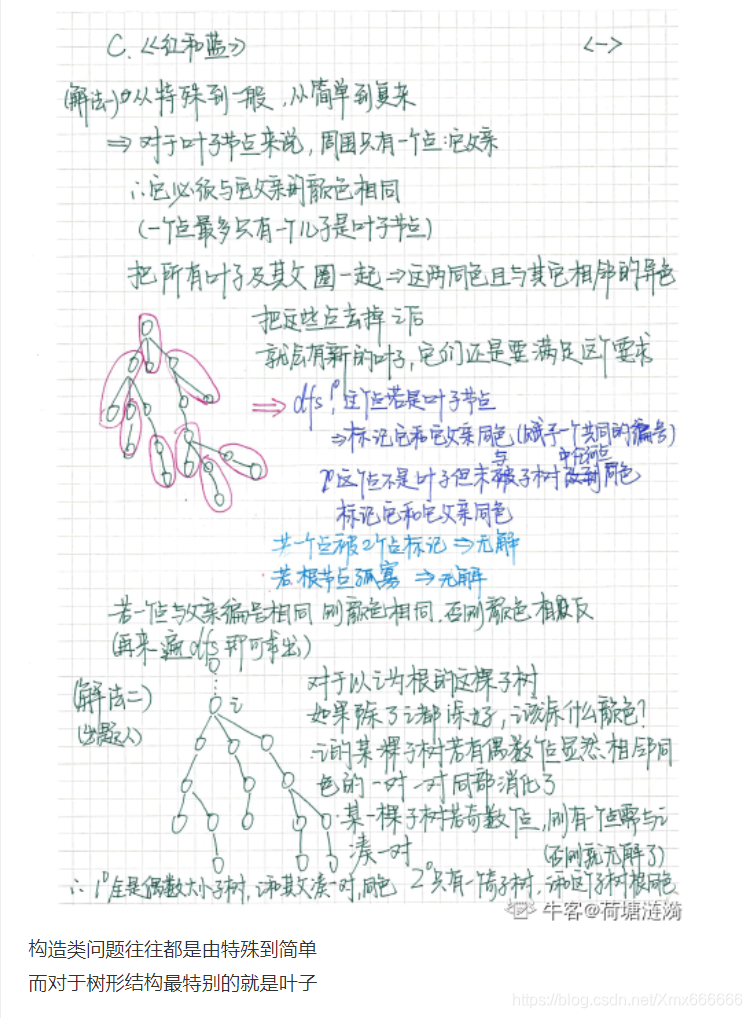 C.《红和蓝》
<一>
(解法一)从特殊到一般,从简单到复杂
⇒ 对于叶子节点来说,周围只有一个点:它父亲
∴它必须与它父亲的颜色相同
(一个点最多只有一个儿子是叶子节点)
把所有叶子及其父圈一起⇒这两同色且与其它相邻的异色
把这些点去掉之后
就会有新的叶子,它们还是要满足这个要求
⇒ dfs 1° 这个点若是叶子节点
⇒标记它和它父亲同色(赋予一个共同的编号)
2°这个点不是叶子但未与子树中任何点同色
标记它和它父亲同色
若一个点被2个点标记⇒无解
若根节点孤寡⇒无解
若一个点与父亲编号相同则颜色相同,否则颜色相反
(再来一遍dfs即可求出)
(解法二)
(出题人)
i
对于以i为根的这棵子树
如果除了i都染好,i该染什么颜色?
i的某棵子树若有偶数个点显然相邻同
色的一对一对内部消化了
某一棵子树若奇数个点,则有一个点需与i
凑一对
(否则就无解了)
∴1°全是偶数大小子树,i和其父凑一对,同色 2°只有一个奇子树,i和这个子树根同色
牛客@荷塘涟漪
构造类问题往往都是由特殊到简单
而对于树形结构最特别的就是叶子
https://blog.csdn.net/Xmx666666